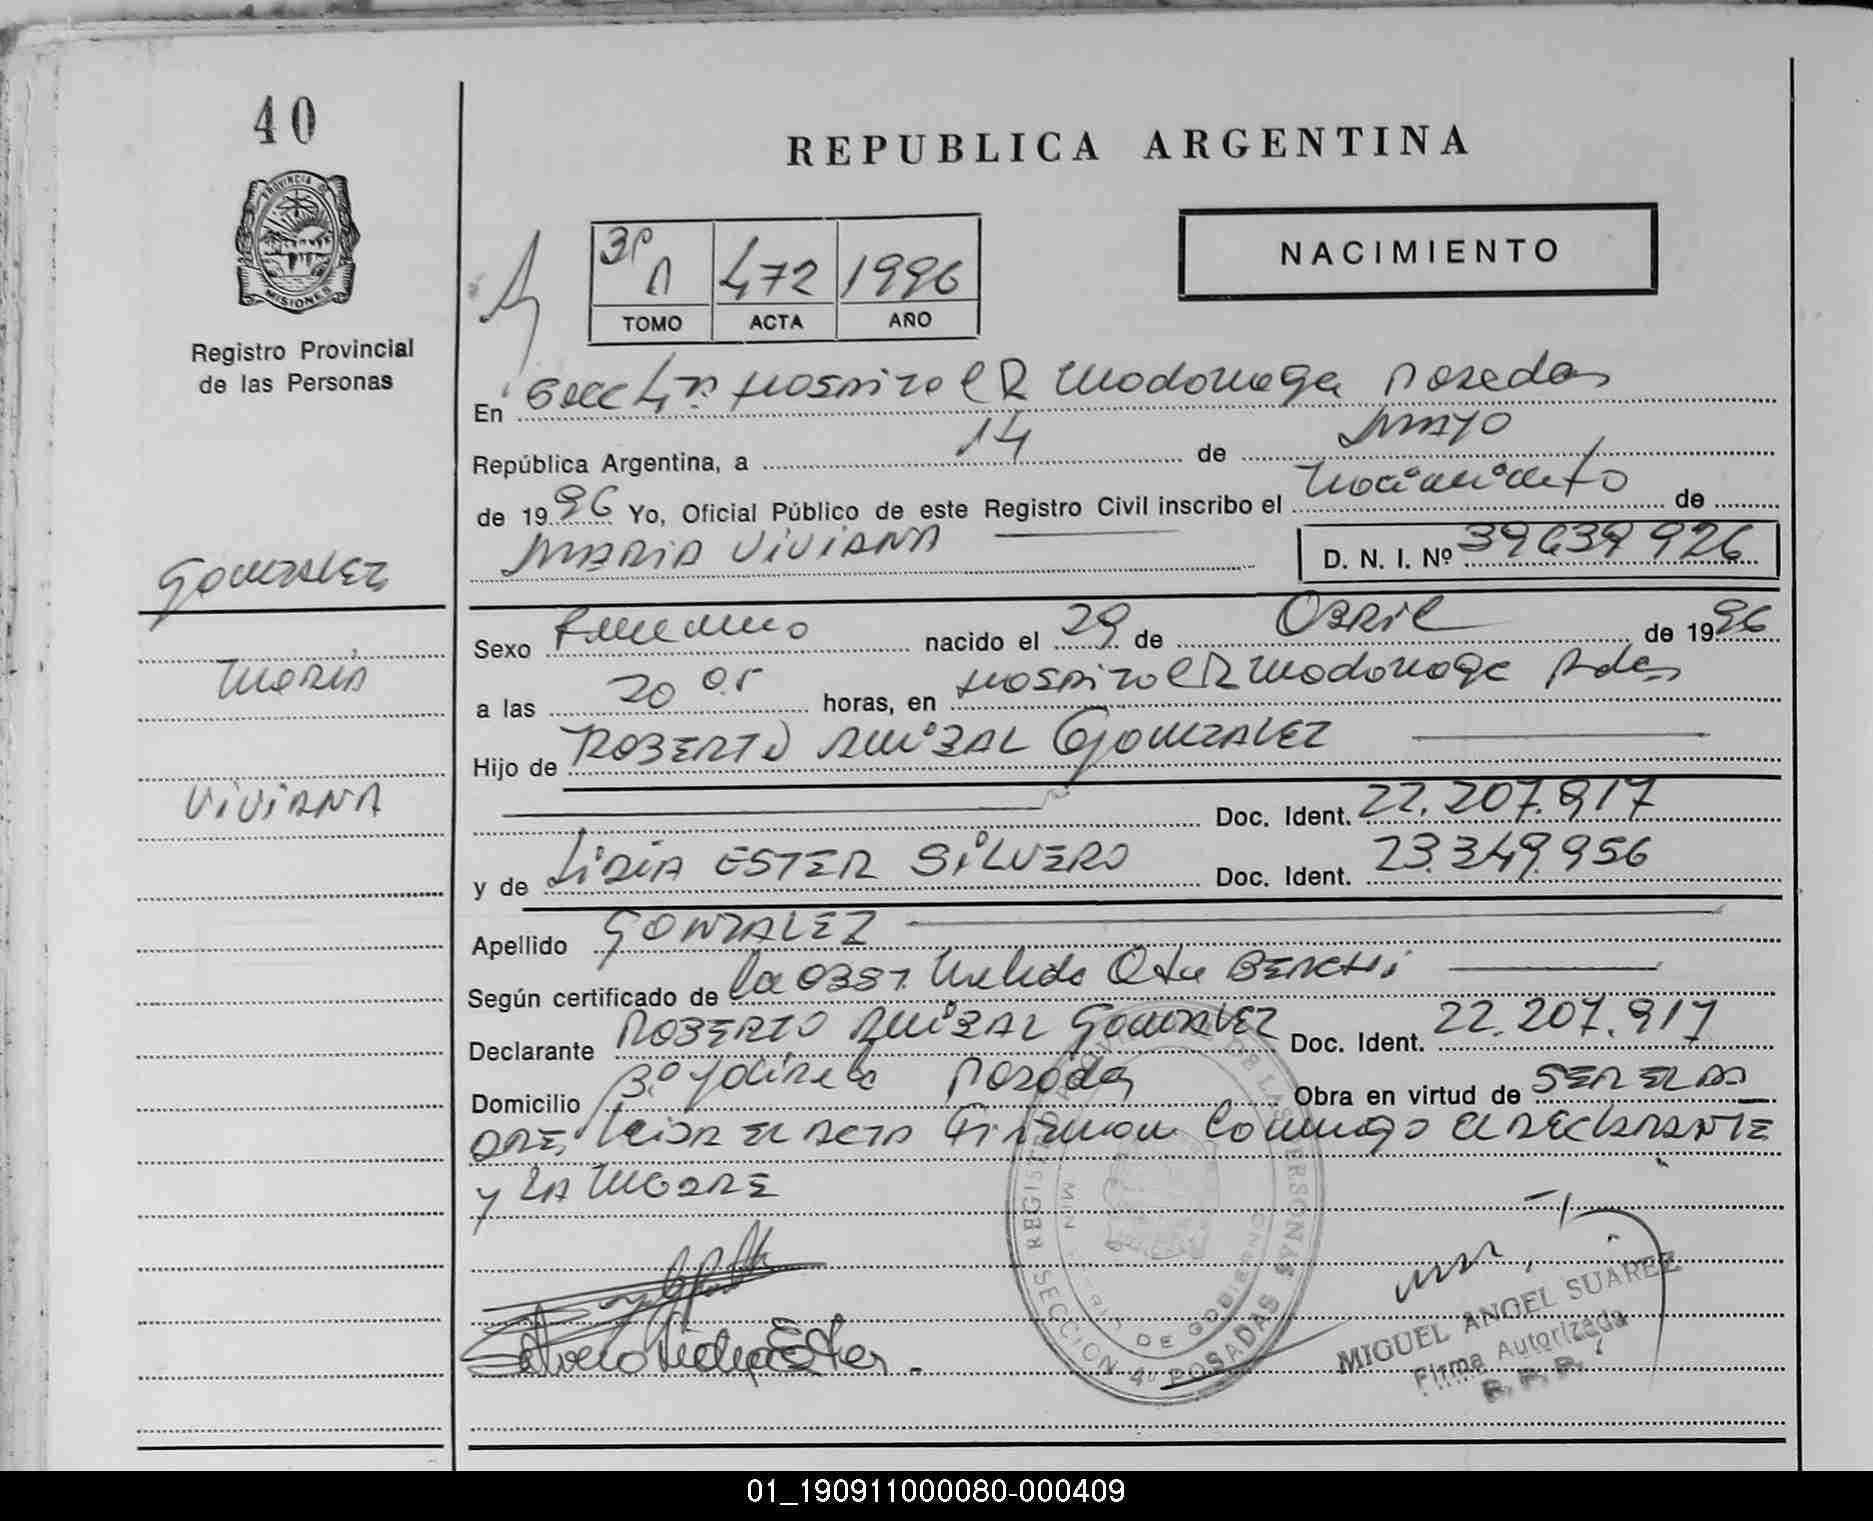 40
REPUBLICA ARGENTINA
PROVINCIA DE
MISIONES
Registro Provincial
de las Personas
NACIMIENTO
3º
472 1996
TOMO ACTA AÑO
En Secc 4ª Hospital R Madariaga Posadas
República Argentina, a 14 de MAYO
de 1996 Yo, Oficial Público de este Registro Civil inscribo el Nacimiento de
MARIA VIVIANA D. N. I. Nº 39639926
GONZALEZ
Maria
VIVIANA
Sexo Femenino nacido el 29 de Abril de 1996
a las 20 05 horas, en Hospital R Madariaga Pdas
Hijo de ROBERTO ANIBAL GONZALEZ
Doc. Ident. 22.207.917
y de LIDIA ESTER SILVERO Doc. Ident. 23.349.956
Apellido GONZALEZ
Según certificado de la OBST. Nelida
Declarante ROBERTO ANIBAL GONZALEZ Doc. Ident. 22.207.917
Domicilio Posadas Obra en virtud de SER EL PA
DRE, Leida EL ACTA Firman Conmigo el DECLARANTE
y LA MADRE
Silvero Lidia Ester.
REGISTRO PROVINCIAL DE LAS PERSONAS
SECCION 4ª POSADAS
MINISTERIO DE GOBIERNO
MIGUEL ANGEL SUAREZ
Firma Autorizada
R. P. P.
01_190911000080-000409